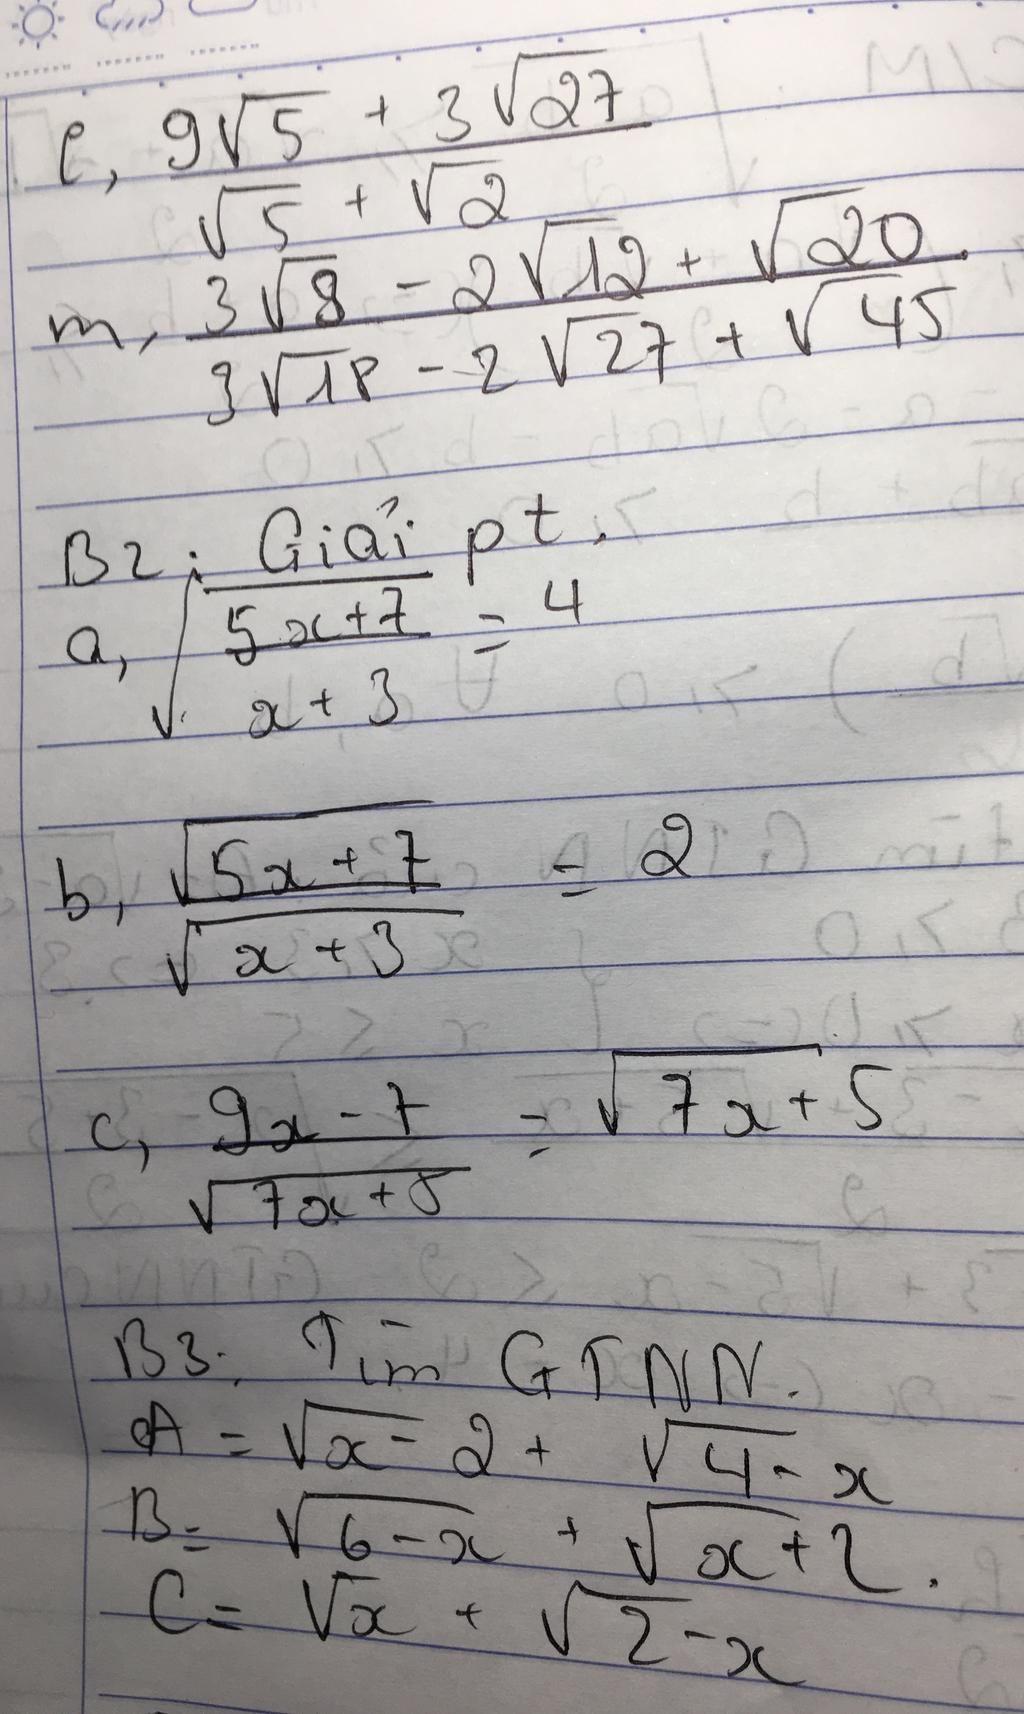 l, (9√5 + 3√27)/(√5 + √2)
m, (3√8 - 2√12 + √20)/(3√18 - 2√27 + √45)
B2: Giải pt.
a, √((5x+7)/(x+3)) = 4
b, √(5x+7)/√(x+3) = 2
c, (9x-7)/√(7x+5) = √(7x+5)
B3: Tìm GTNN.
A = √(x-2) + √(4-x)
B = √(6-x) + √(x+2).
C = √x + √(2-x)